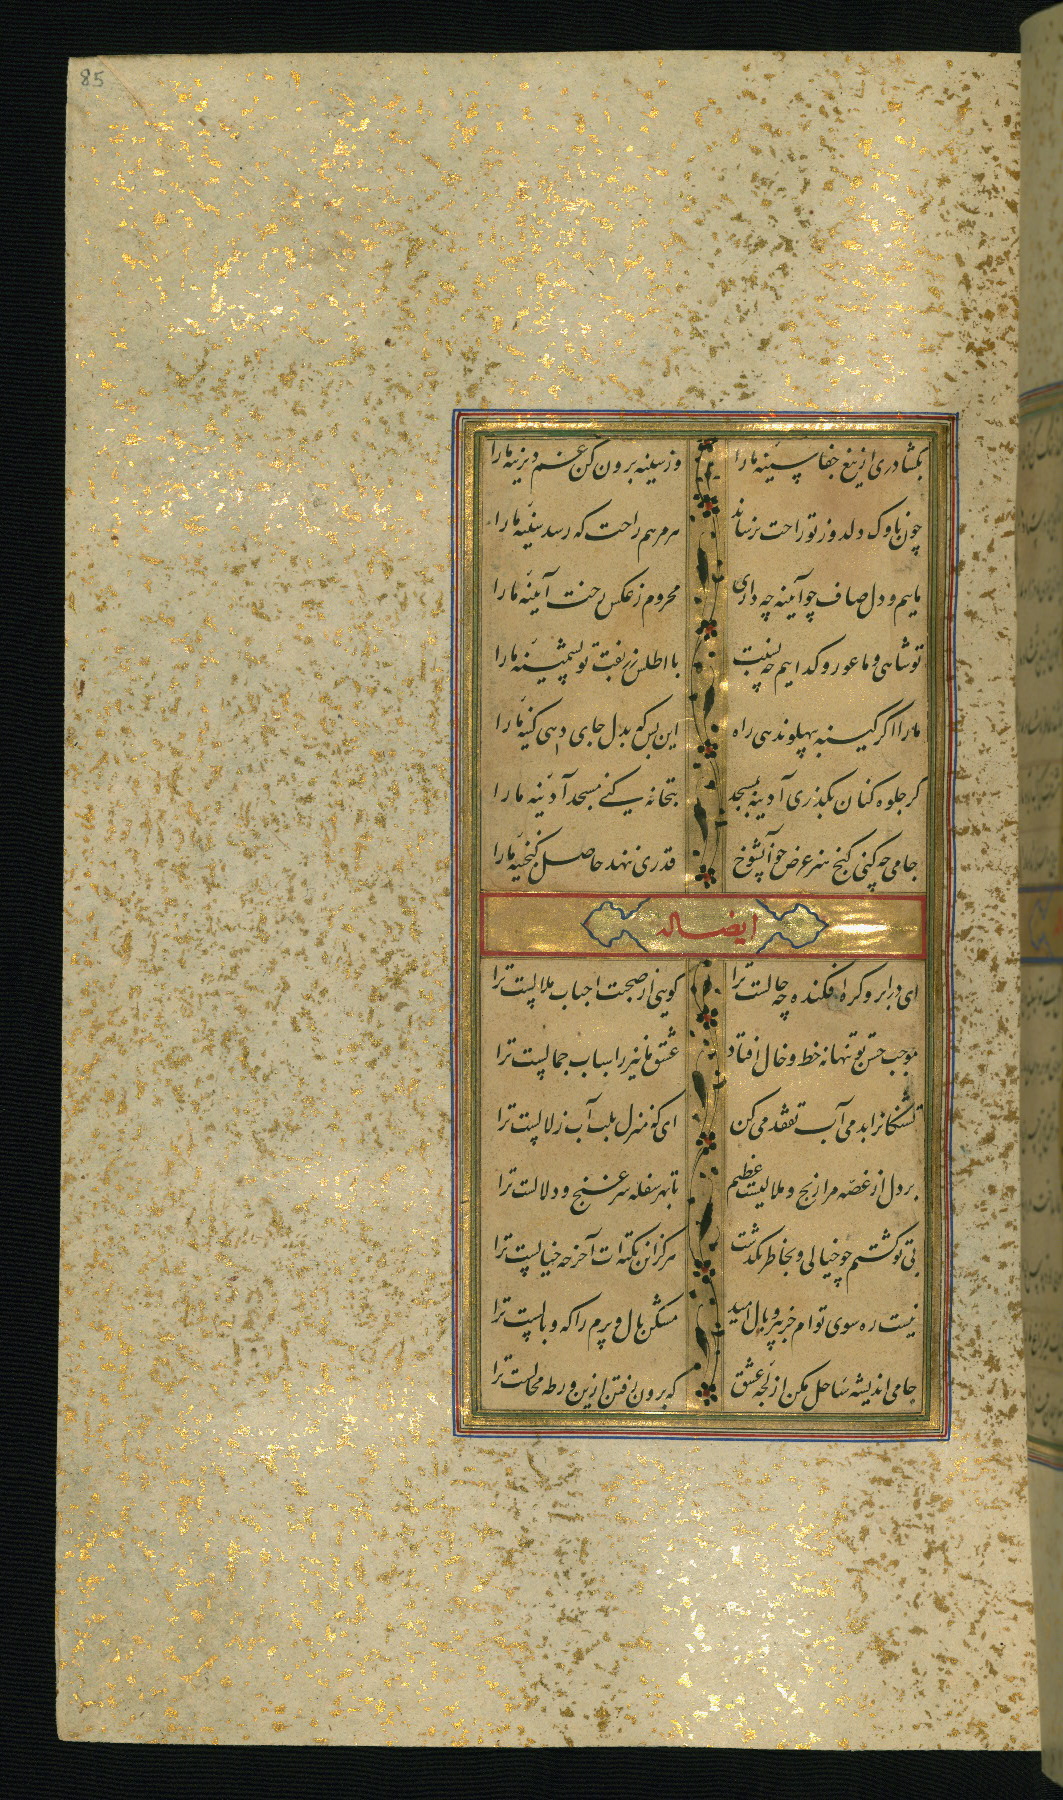 85
بکشا دری از تیغ جفا سینهٔ ما را وز سینه برون کن غم دیرینه ما را
چون ناوک دلدوز تو راحت نرساند هر مرهم راحت که رسد سینهٔ ما را
ماییم و دل صاف چو آیینه چه داری محروم ز عکس رخت آیینهٔ ما را
تو شاهی و ما عور و کداییم چه نسبت با اطلس زربفت تو پشمینهٔ ما را
ما را اکر کینه پهلو ندهی راه این بس که بدل جای دهی کینهٔ ما را
کر جلوه کنان بکذری آدینه بمسجد بتخانه کنی مسجد آدینه ما را
جامی چه کنی کنج هنر عرض چو آن شوخ قدری ننهد حاصل کنجینهٔ ما را
ایضا له
ای در ابرو کره افکنده چه حالست ترا کویی از صحبت احباب ملالست ترا
موجب حسن تو تنها نه خط و خال افتاد عشق ما نیز ز اسباب جمالست ترا
تشنکانرا بدمی آب تفقد می کن ای که منزل بلب آب زلالست ترا
بر دل از غصه مرا رنج و ملالیست عظیم تا بهر سفله سر غنج و دلالست ترا
بی تو کشتم چو خیالی و بخاطر نکذشت هرکز آن نکته ات آخر چه خیالست ترا
نیست ره سوی توام جز بپر و بال امید مشکن بال و پرم را که وبالست ترا
جامی اندیشه ساحل مکن از لجهٔ عشق که برون رفتن ازین ورطه محالست ترا